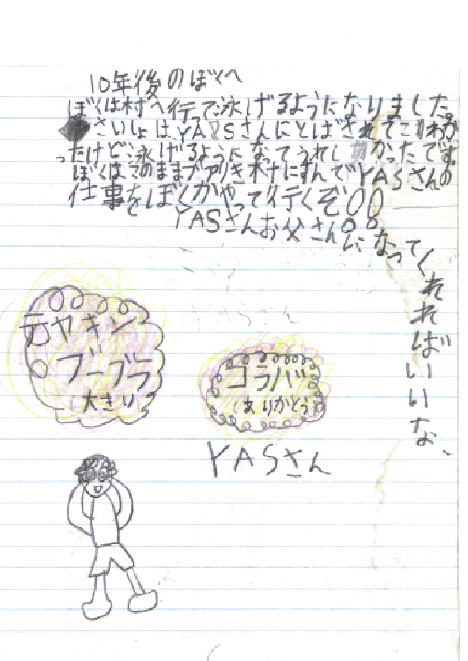 10年後のぼくへ
ぼくは村へ行って泳げるようになりました。
さいしょはYASさんにとばされてこわか
ったけど泳げるようになってうれしかったです。
ぼくはこのまま村にすんでYASさんの
仕事をぼくがやって行くぞ!!
YASさんお父さんになってくれればいいな、
ヤキン
ブーブラ
大きい
コラバ
ありがとう
YASさん